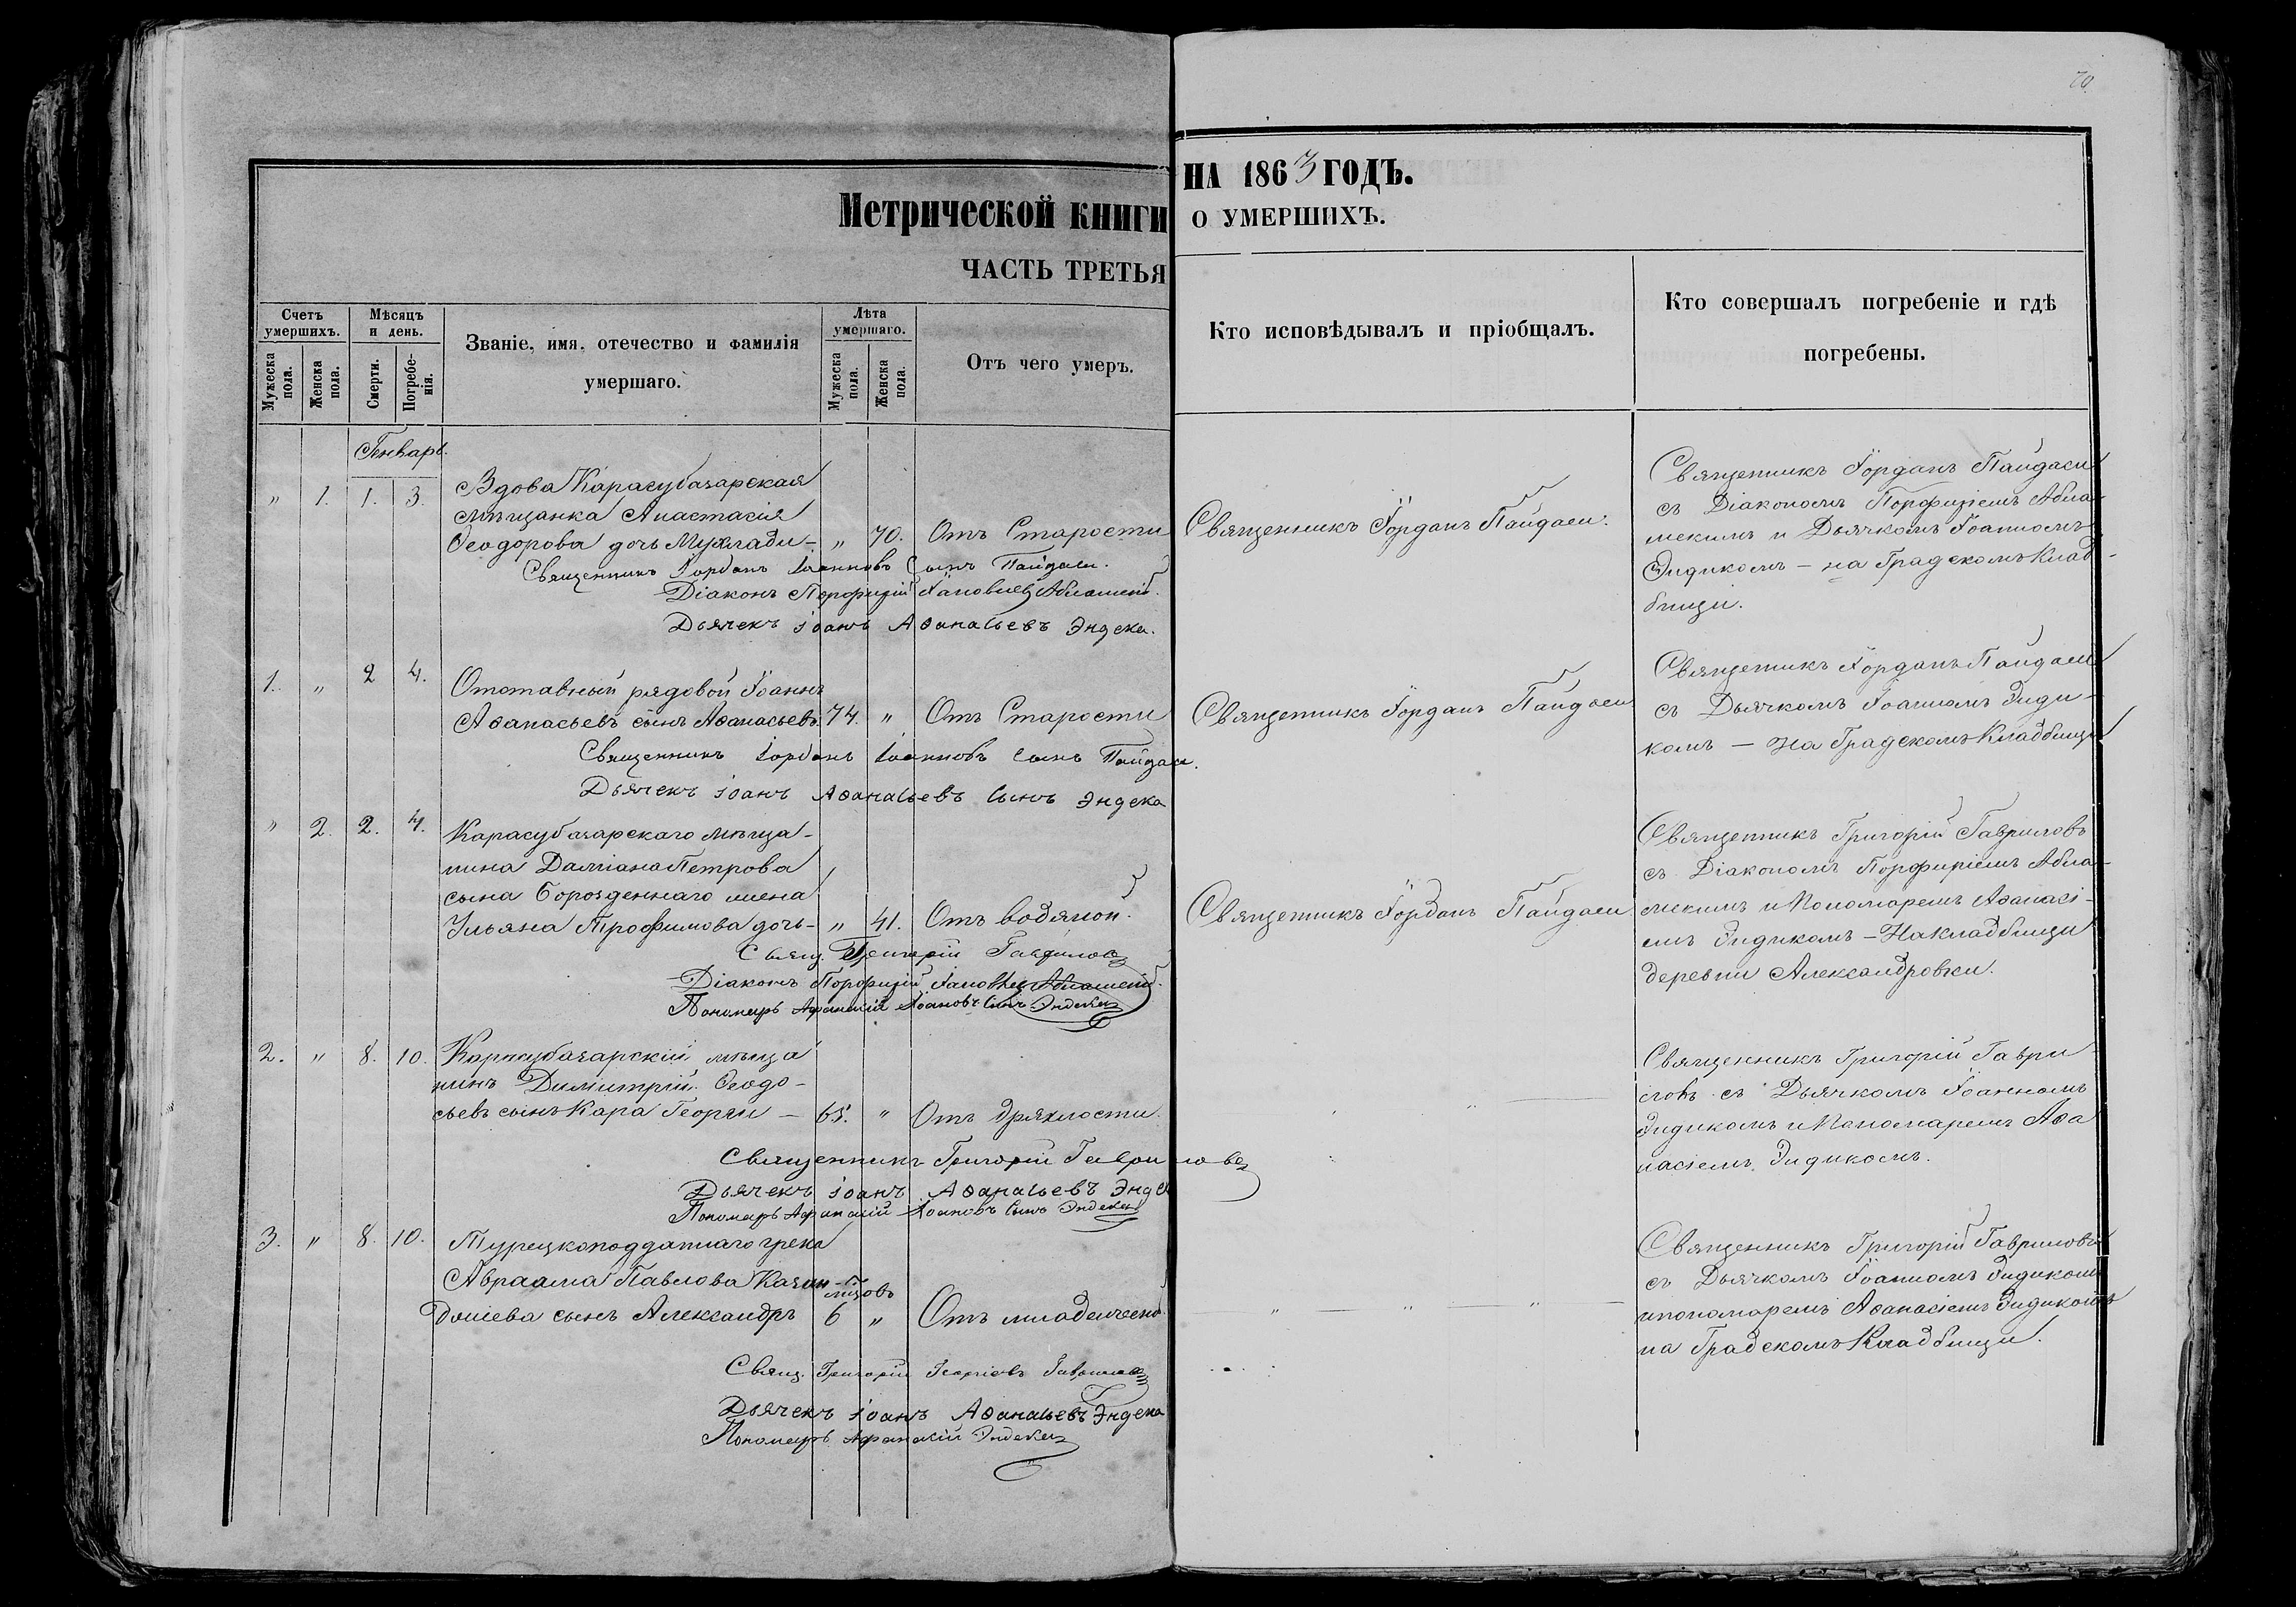 70
Метрической книги НА 1863 ГОДЪ.
ЧАСТЬ ТРЕТЬЯ О УМЕРШИХЪ.
Счетъ умершихъ.
Мужеска пола.
Женска пола.
Мѣсяцъ и день.
Смерти.
Погребенія.
Званіе, имя, отечество и фамилія
умершаго.
Лѣта умершаго.
Мужеска пола.
Женска пола.
Отъ чего умеръ.
Кто исповѣдывалъ и пріобщалъ.
Кто совершалъ погребеніе и гдѣ
погребены.
Генварь.
" 1. 1. 3.
Вдова Карасубазарская
мѣщанка Анастасія
Ѳеодорова дочь - " 70. Отъ Старости
Священникъ Іорданъ Пайдаси.
Священникъ Іорданъ Пайдаси
съ Діакономъ Порфиріемъ Абла-
мскимъ и Дьячкомъ Іоанномъ
Эндикомъ - на Градскомъ Клад-
бищи.
Священникъ Іорданъ Іоанновъ Сынъ Пайдаси.
Діаконъ Порфирій
Дьячекъ іоанъ Аѳанасьевъ Эндека.
1. " 2 4.
Отставный рядовой Іоаннъ
Аѳанасьевъ сынъ Аѳанасьевъ. 74. " Отъ Старости
Священникъ Іорданъ Пайдаси
Священникъ Іорданъ Пайдаси
съ Дьячкомъ Іоанномъ Энди-
комъ - на Градскомъ Кладбищи
Священникъ Іорданъ Іоанновъ Сынъ Пайдаси.
Дьячекъ іоанъ Аѳанасьевъ Сынъ Эндека
" 2. 2. 4.
Карасубазарскаго мѣща-
нина Даміана Петрова
сына Борозденнаго жена
Ульяна Трофимова дочь- " 41. Отъ водяной.
Священникъ Іорданъ Пайдаси
Священникъ Григорій Гавриловъ
съ Діакономъ Порфиріемъ Абла-
мскимъ и Пономаремъ Аѳанасі-
емъ Эндикомъ - На кладбищи
деревни Александровки.
Свящ. Григорій Гавриловъ
Діаконъ Порфирій
Пономарь Афанасій Іоановъ Сынъ Эндека
2. " 8. 10.
Карасубазарскій мѣща
нинъ Димитрій Ѳеодо-
сьевъ сынъ Кара Георги - 65. " Отъ дряхлости.
Священникъ Григорій Гаври
ловъ съ Дьячкомъ Іоанномъ
Эндикомъ и Пономаремъ Аѳа
насіемъ Эндикомъ.
Священникъ Григорій Гавриловъ
Дьячекъ іоанъ Аѳанасьевъ Энде
Пономарь Афанасій Іоановъ Сынъ Эндека
3. " 8. 10.
Турецкоподданаго грека
Авраама Павлова Казан-
дошева сынъ Александръ 6 " Отъ младенческой
" — " — " —
Священникъ Григорій Гавриловъ
съ Дьячкомъ Іоанномъ Эндикомъ
и пономаремъ Аѳанасіемъ Эндикомъ
на Градскомъ Кладбищи.
Свящ. Григорій Георгіевъ Гавриловъ
Дьячекъ іоанъ Аѳанасьевъ Эндека
Пономарь Афанасій Эндека